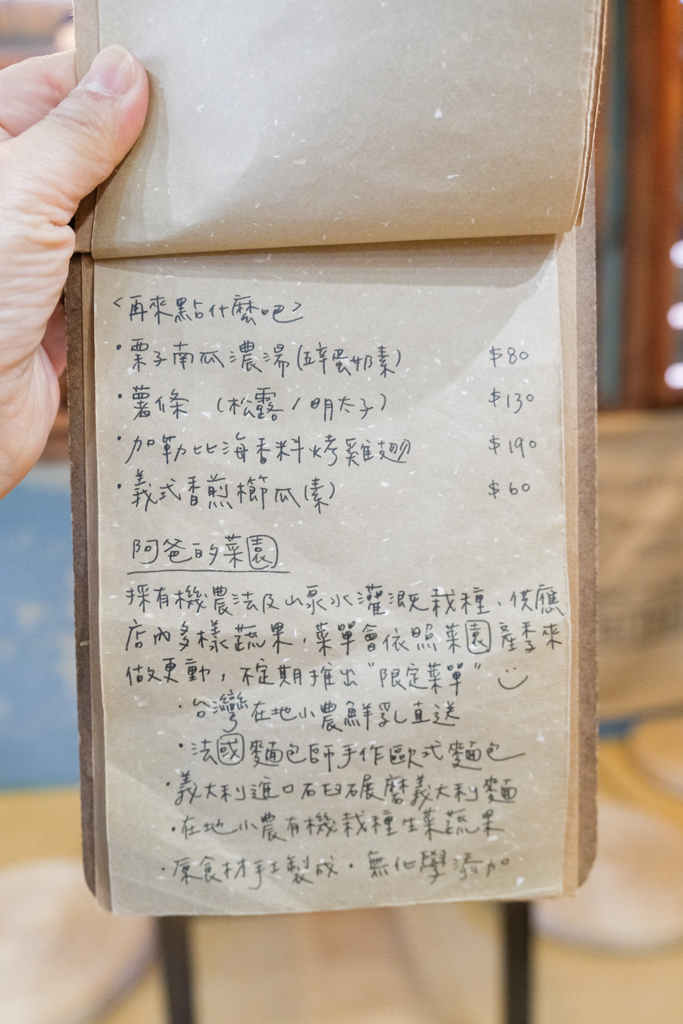 <再來點什麼吧>
・栗子南瓜濃湯(五辛蛋奶素) $80
・薯條 (松露/明太子) $130
・加勒比海香料烤雞翅 $190
・義式香煎櫛瓜(素) $60
阿爸的菜園
採有機農法及山泉水灌溉栽種,供應
店內多樣蔬果,菜單會依照菜園產季來
做更動,不定期推出"限定菜單"
・台灣在地小農鮮乳直送
・法國麵包師手作歐式麵包
・義大利進口石臼碾磨義大利麵
・在地小農有機栽種生菜蔬果
・原食材手工製成・無化學添加